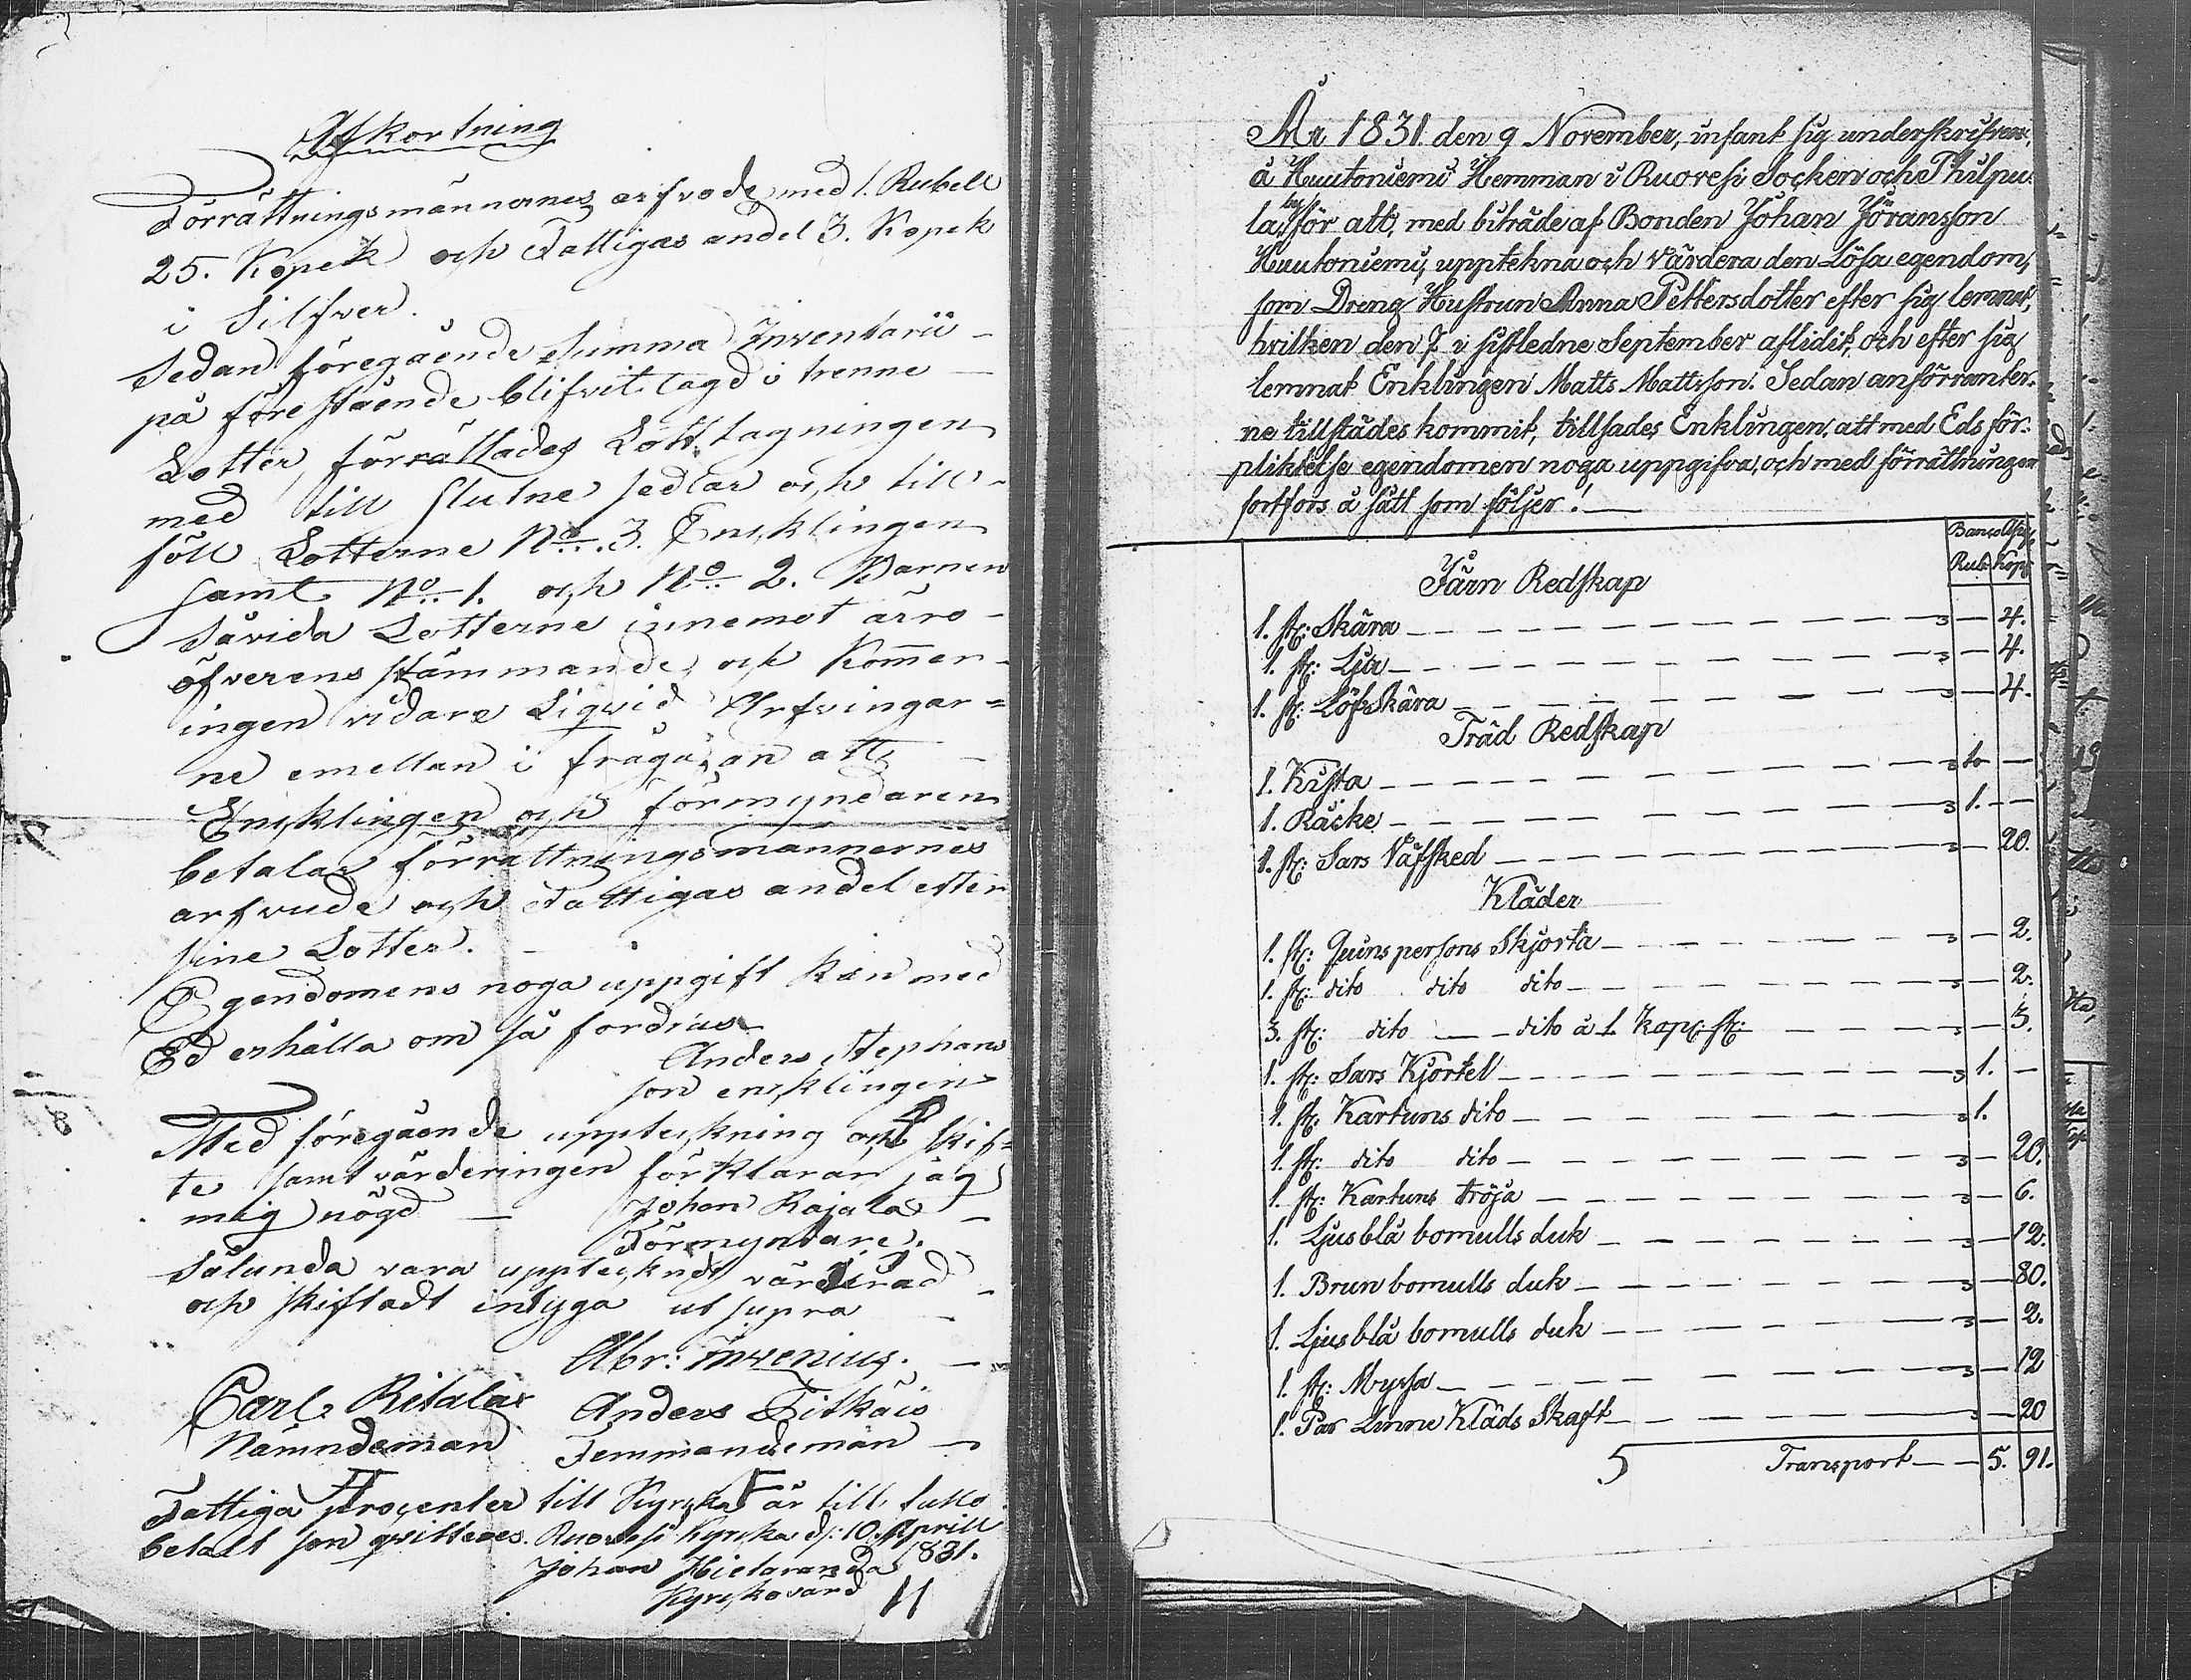 Afkortning
Förrättningsmännernes arfvode med 1. Rubell
25. Kopek och Fattigas andel 3. Kopek
i Silfver.
Sedan föregående Summa Inventarii
på förestående blifvit lagd i trenne
Lotter, förrättades Lott tagningen
med till slutne sedlar och till-
föll Lotterne No. 3. Encklingen
samt No. 1. och No. 2. Barnen
Såvida Lotterne innemot äro
öfverens stämmande och Kommer
ingen vidare Liqvid Arfvingar=
ne emellan i fråga, än att
Encklingen och förmyndaren
betalar förrättningsmännernes
arfvude och Fattigas andel efter
sine Lotter.
Egendomens noga uppgift kan med
Ed erhålla om så fordras
Anders Stephans
son encklingen
Med föregående uppteckning och skif=
te samt värderingen förklarar jag
mig nögd Johan Rajala
Förmyndare.
Sålunda vara uppteknat värderad
och skiftadt intyga ut supra
Abr: Invenius.
Carl Ritalax Anders Pitkäis
Nämndeman Femmandeman
Fattiga procenter till Kyrcka är till fullo
betalt som qvitteras. Ruovesi Kyrcka d: 10 Aprill
Johan Hietaranda 1831.
Kyrckovärd
År 1831. den 9 November, infant sig underskrifvan,
å Huutoniemi Hemman i Ruovesi Socken och Philpu
la by för att, med biträde af Bonden Johan Jöransson
Huutoniemi, upptekna och värdera den Lösa egendom,
som Dreng Hustrun Anna Pettersdotter efter sig lemnat,
hvilken den 7 i sistledne September aflidit, och efter sig
lemnat Enklingen Matts Mattsson. Sedan anförvanter-
ne tillstädes kommit, tillsades Enklingen, att med Eds för-
pliktelse egendomen noga uppgifva, och med förrättningen
fortfors å sätt som följer!
Banco
Rub. Kop.
Järn Redskap
1. st: Skära 4.
1. st: Lia 4.
1. st: Löfskära 4.
Träd Redskap
1. Kista
1. Räcke 1.
1. st: Sars Väfsked 20.
Kläder
1. st: Quins persons Skjorta 2.
1. st: dito dito dito 2.
3. st: dito dito à 1. Kop: st: 3.
1. st: Sars Kjortel 1.
1. st: Kartuns dito 1.
1. st: dito dito 20.
1. st: Kartuns tröja 6.
1. Ljusblå bomulls duk 12.
1. Brun bomulls duk 80.
1. Ljusblå bomulls duk 2.
1. st: Myssa 12
1. Par Linne Kläds Skaft 20
5 Transport 5. 91.